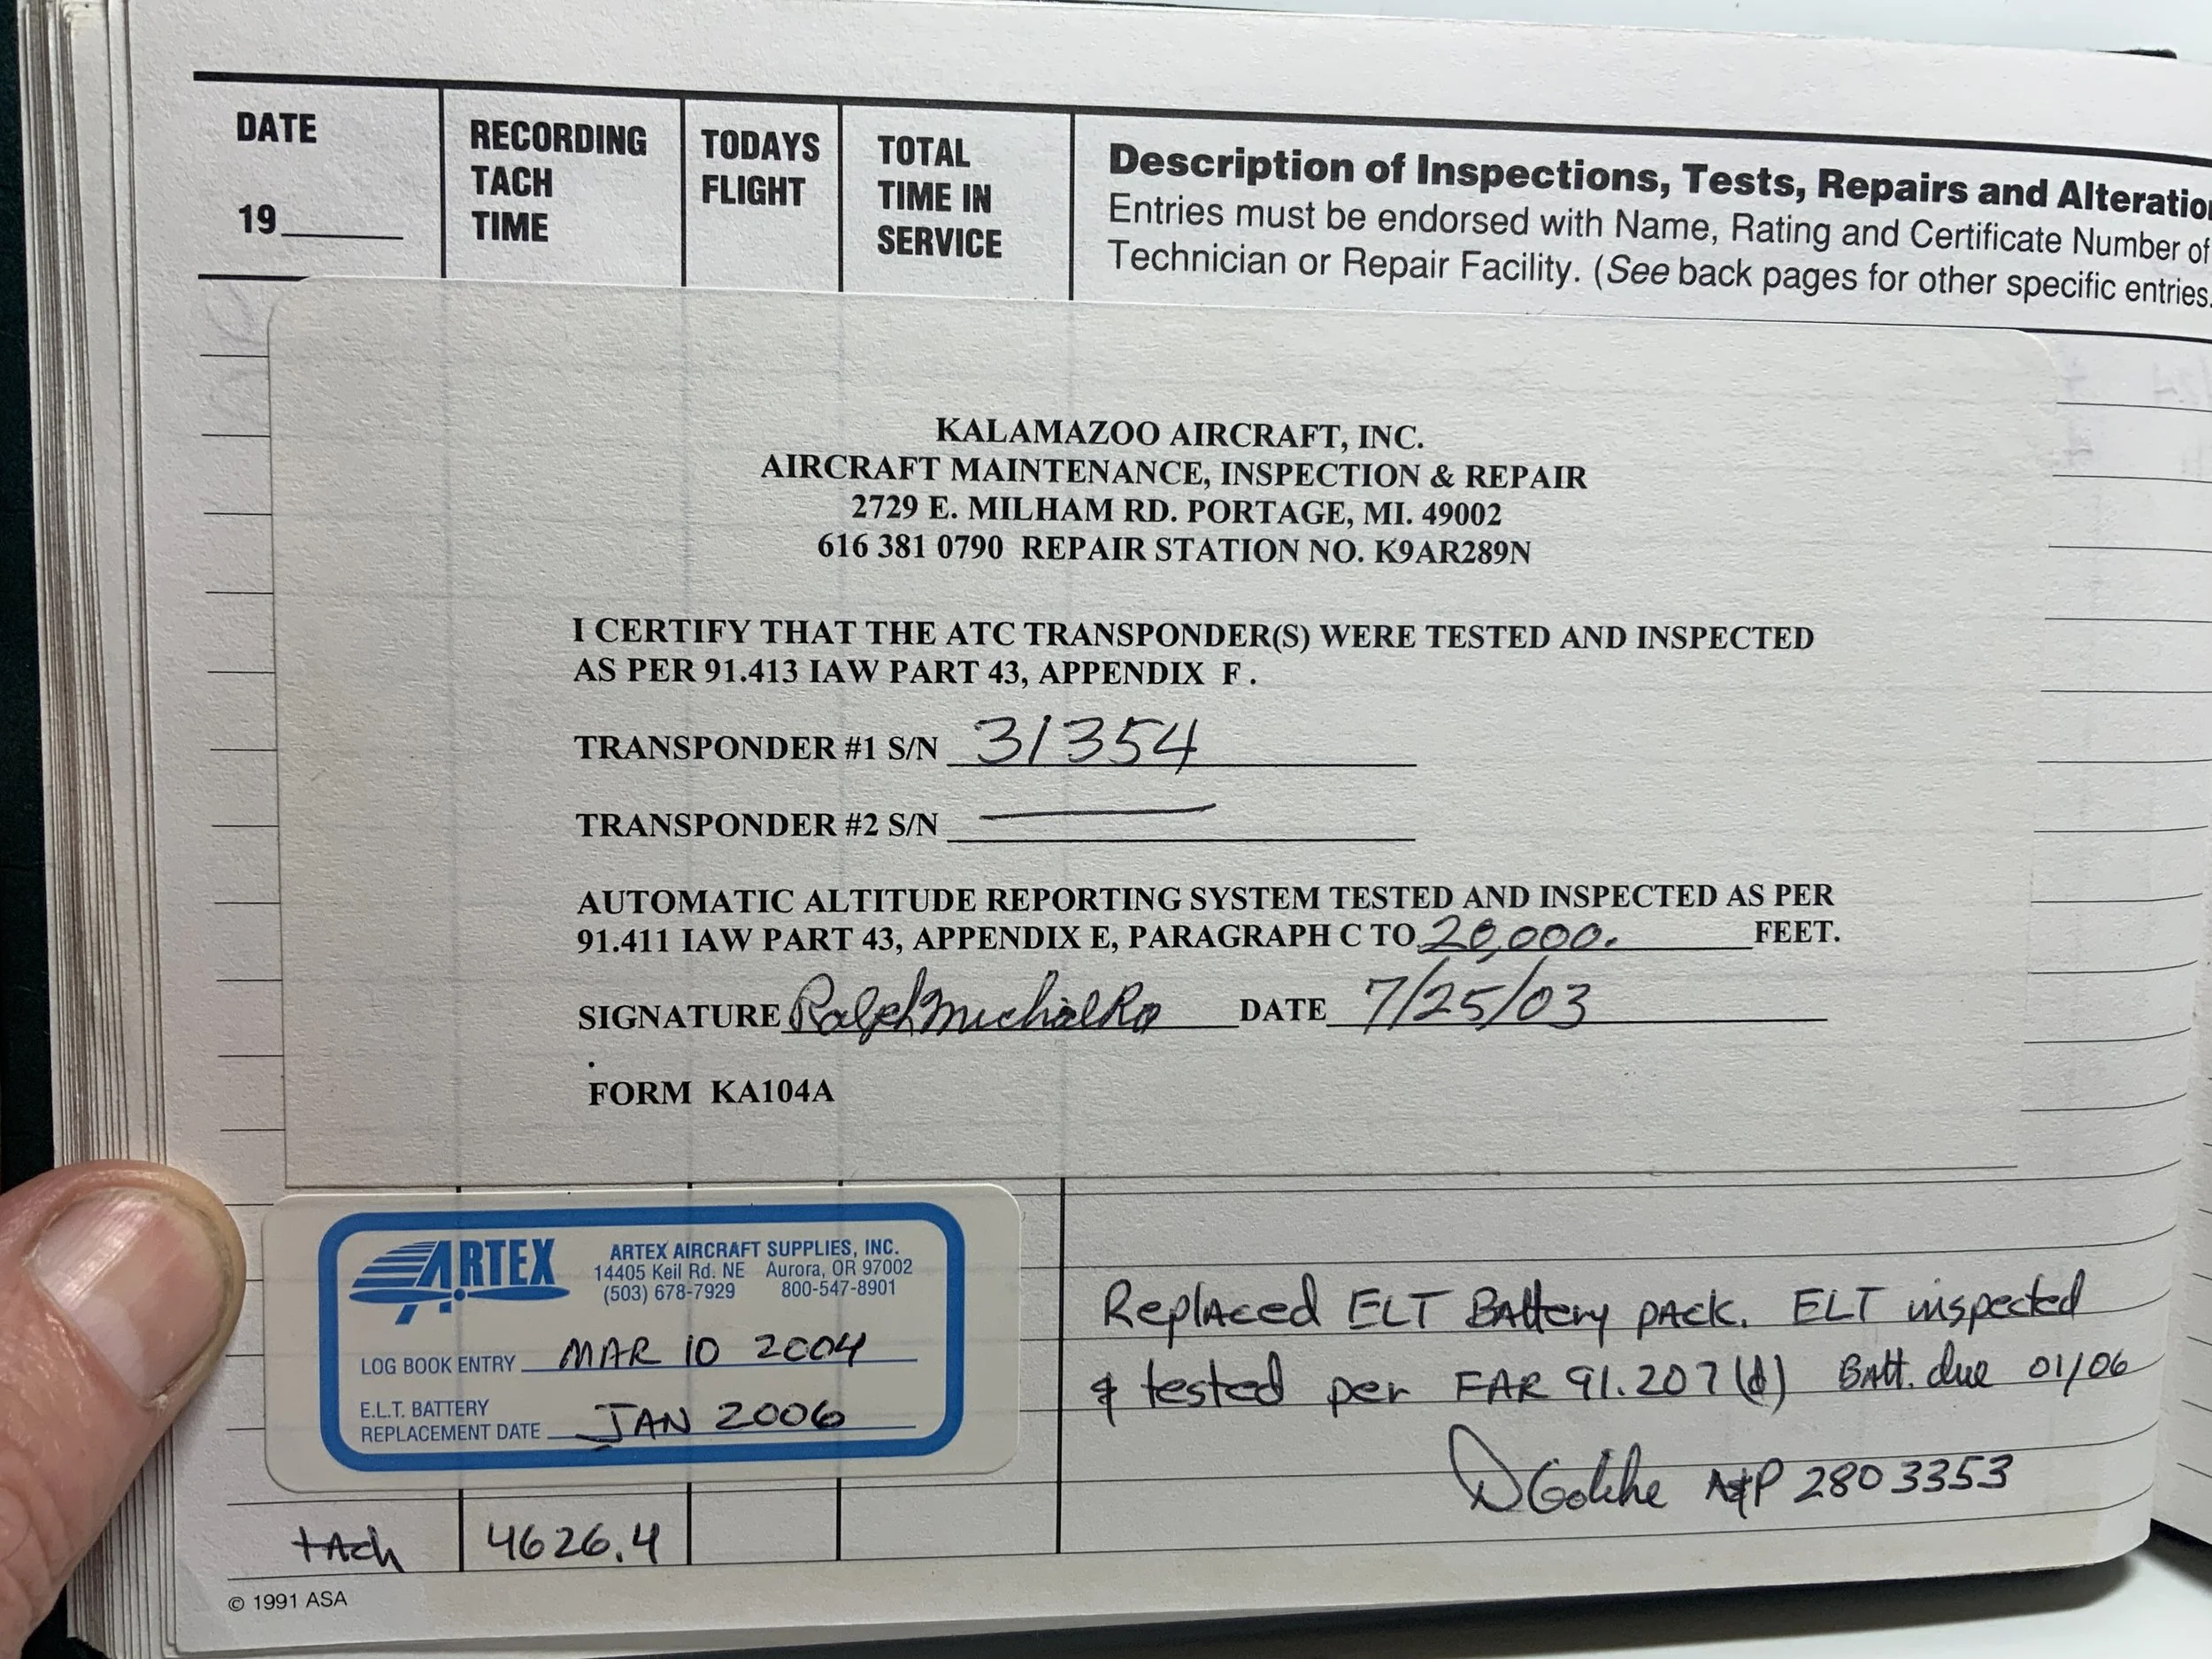 DATE
19
RECORDING
TACH
TIME
TODAYS
FLIGHT
TOTAL
TIME IN
SERVICE
Description of Inspections, Tests, Repairs and Alteratio
Entries must be endorsed with Name, Rating and Certificate Number of
Technician or Repair Facility. (See back pages for other specific entries.
KALAMAZOO AIRCRAFT, INC.
AIRCRAFT MAINTENANCE, INSPECTION & REPAIR
2729 E. MILHAM RD. PORTAGE, MI. 49002
616 381 0790 REPAIR STATION NO. K9AR289N
I CERTIFY THAT THE ATC TRANSPONDER(S) WERE TESTED AND INSPECTED
AS PER 91.413 IAW PART 43, APPENDIX F.
TRANSPONDER #1 S/N 31354
TRANSPONDER #2 S/N —
AUTOMATIC ALTITUDE REPORTING SYSTEM TESTED AND INSPECTED AS PER
91.411 IAW PART 43, APPENDIX E, PARAGRAPH C TO 20,000. FEET.
SIGNATURE Ralph Michalko DATE 7/25/03
FORM KA104A
ARTEX
ARTEX AIRCRAFT SUPPLIES, INC.
14405 Keil Rd. NE Aurora, OR 97002
(503) 678-7929 800-547-8901
LOG BOOK ENTRY MAR 10 2004
E.L.T. BATTERY
REPLACEMENT DATE JAN 2006
Replaced ELT Battery pack. ELT inspected
& tested per FAR 91.207(d) Batt. due 01/06
A&P 2803353
tach 4626.4
© 1991 ASA